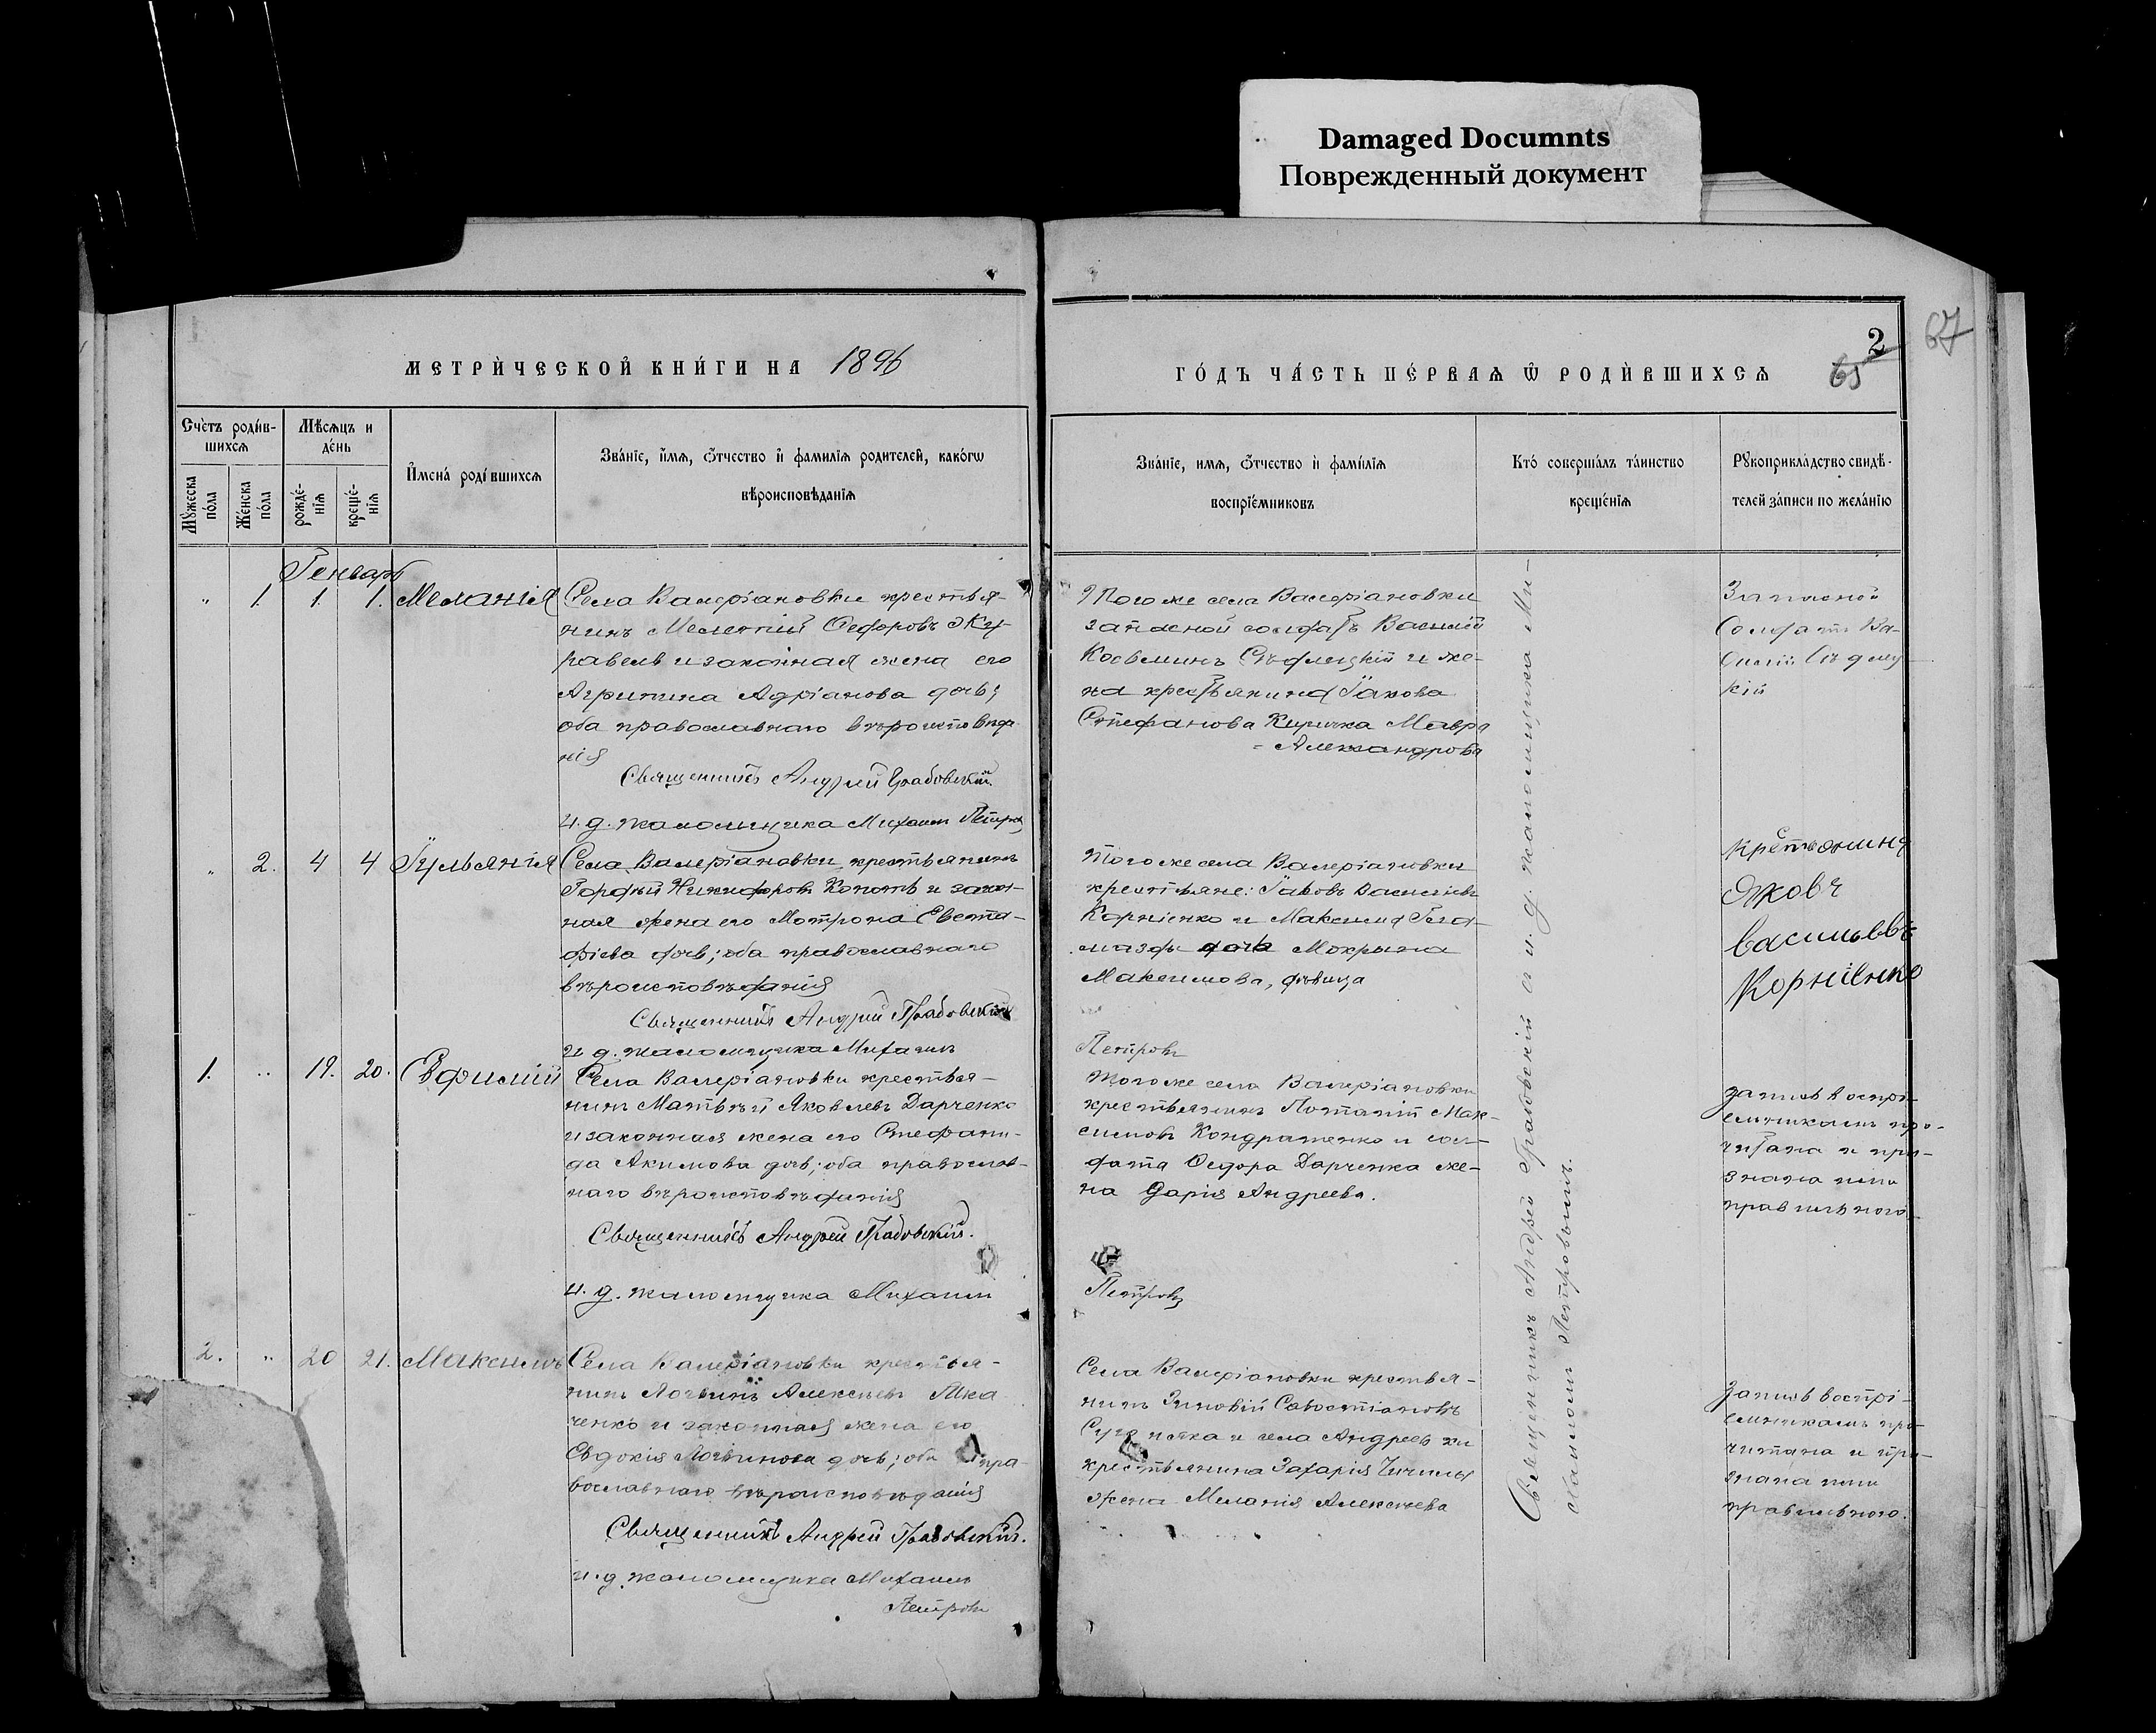 Damaged Documnts
Поврежденный документ
67
2
65
МЕТРИ́ЧЕСКОЙ КНИ́ГИ НА 1896
ГО́ДЪ ЧА́СТЬ ПЕ́РВАѦ Ѡ РОДИ́ВШИХСѦ
Счетъ роди́в-
шихсѧ
Мѣсѧцъ и
де́нь
Мꙋ́жеска
по́ла
Же́нска
по́ла
рожде́-
нїѧ
креще́-
нїѧ
И҆мена́ роди́вшихсѧ
Зва́нїе, и҆́мѧ, ѻ҆́тчество и҆ фами́лїѧ родителей, како́гѡ
вѣроисповѣ́данїѧ
Зва́нїе, имѧ, ѻ҆́тчество и҆ фами́лїѧ
воспрїе́мниковъ
Кто́ соверша́лъ та́инство
креще́нїѧ
Рꙋкоприкла́дство свидѣ́-
телей за́писи по жела́нїю
Генварь
" 1. 1. 1. Меланія
Села Валеріановки крестья-
нинъ Мелетій Ѳедоровъ Жу-
равель и законная жена его
Агрипина Адріанова дочь;
оба православнаго вѣроисповѣда-
нія
Священникъ Андрей Грабовскій.
И. д. псаломщика Михаилъ Петровъ
Того же села Валеріановки
запасной солдатъ Василій
Косьминъ Сѣдлецкій и же-
на крестьянина Іакова
Стефанова Киричка Мавра
Александрова
Запасной
Солдатъ Ва-
силій Сѣдлец-
кій
" 2. 4 4 Іульянія
Села Валеріановки крестьянинъ
Гордѣй Никифоровъ Копоть и закон-
ная жена его Мотрона Евста-
фіева дочь; оба православнаго
вѣроисповѣданія
Священникъ Андрей Грабовскій
И. д. псаломщика Михаилъ
Петровъ
Того же села Валеріановки
крестьяне: Іаковъ Васильевъ
Корніенко и Максима Гала-
мазды дочь Мокрина
Максимова, дѣвица
крестьянинъ
Яковъ
Васильевъ
Корніенко
1. " 19. 20. Евфимій
Села Валеріановки крестья-
нинъ Матвѣй Яковлевъ Дарченко
и законная жена его Стефани-
да Акимова дочь; оба православ-
наго вѣроисповѣданія
Священникъ Андрей Грабовскій.
И. д. псаломщика Михаилъ
Петровъ
Того же села Валеріановки
крестьянинъ Потапій Мак-
симовъ Кондратенко и сол-
дата Ѳедора Дарченка же-
на Дарія Андреева.
Запись воспрі-
емникамъ про-
читана и при-
знана ими
правильного
2. " 20 21. Максимъ
Села Валеріановки крестья-
нинъ Логвинъ Алексѣевъ Тка
ченко и законная жена его
Евдокія Логвинова дочь; оба пра-
вославнаго вѣроисповѣданія
Священникъ Андрей Грабовскій.
и. д. псаломщика Михаилъ
Петровъ
Села Валеріановки крестья-
нинъ Зиновій Савостіановъ
и села Андреевки
крестьянина Захарія
жена Меланія Алексѣева
Запись воспрі-
емникамъ про
читана и при-
знана ими
правильного.
Священникъ Андрей Грабовскій и и. д. псаломщика Ми-
хаиломъ Петровымъ.